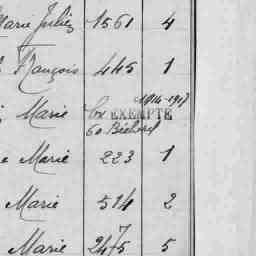 Marie Julie 1561 4
François 445 1
1914-1917
Marie EXEMPTE
60
Marie 223 1
Marie 514 2
Marie 2475 5